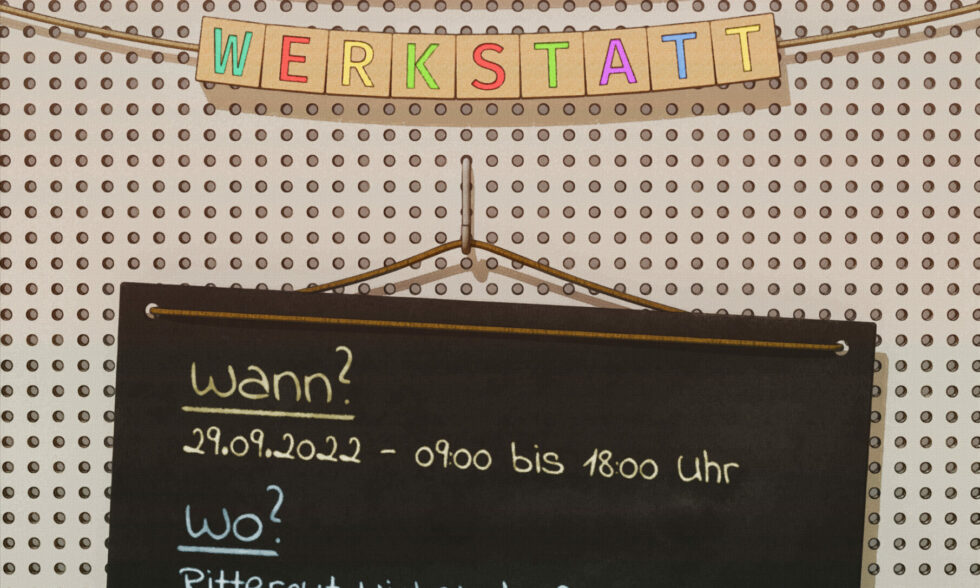 WERKSTATT
wann?
29.09.2022 - 09:00 bis 18:00 Uhr
wo?
Rittergut